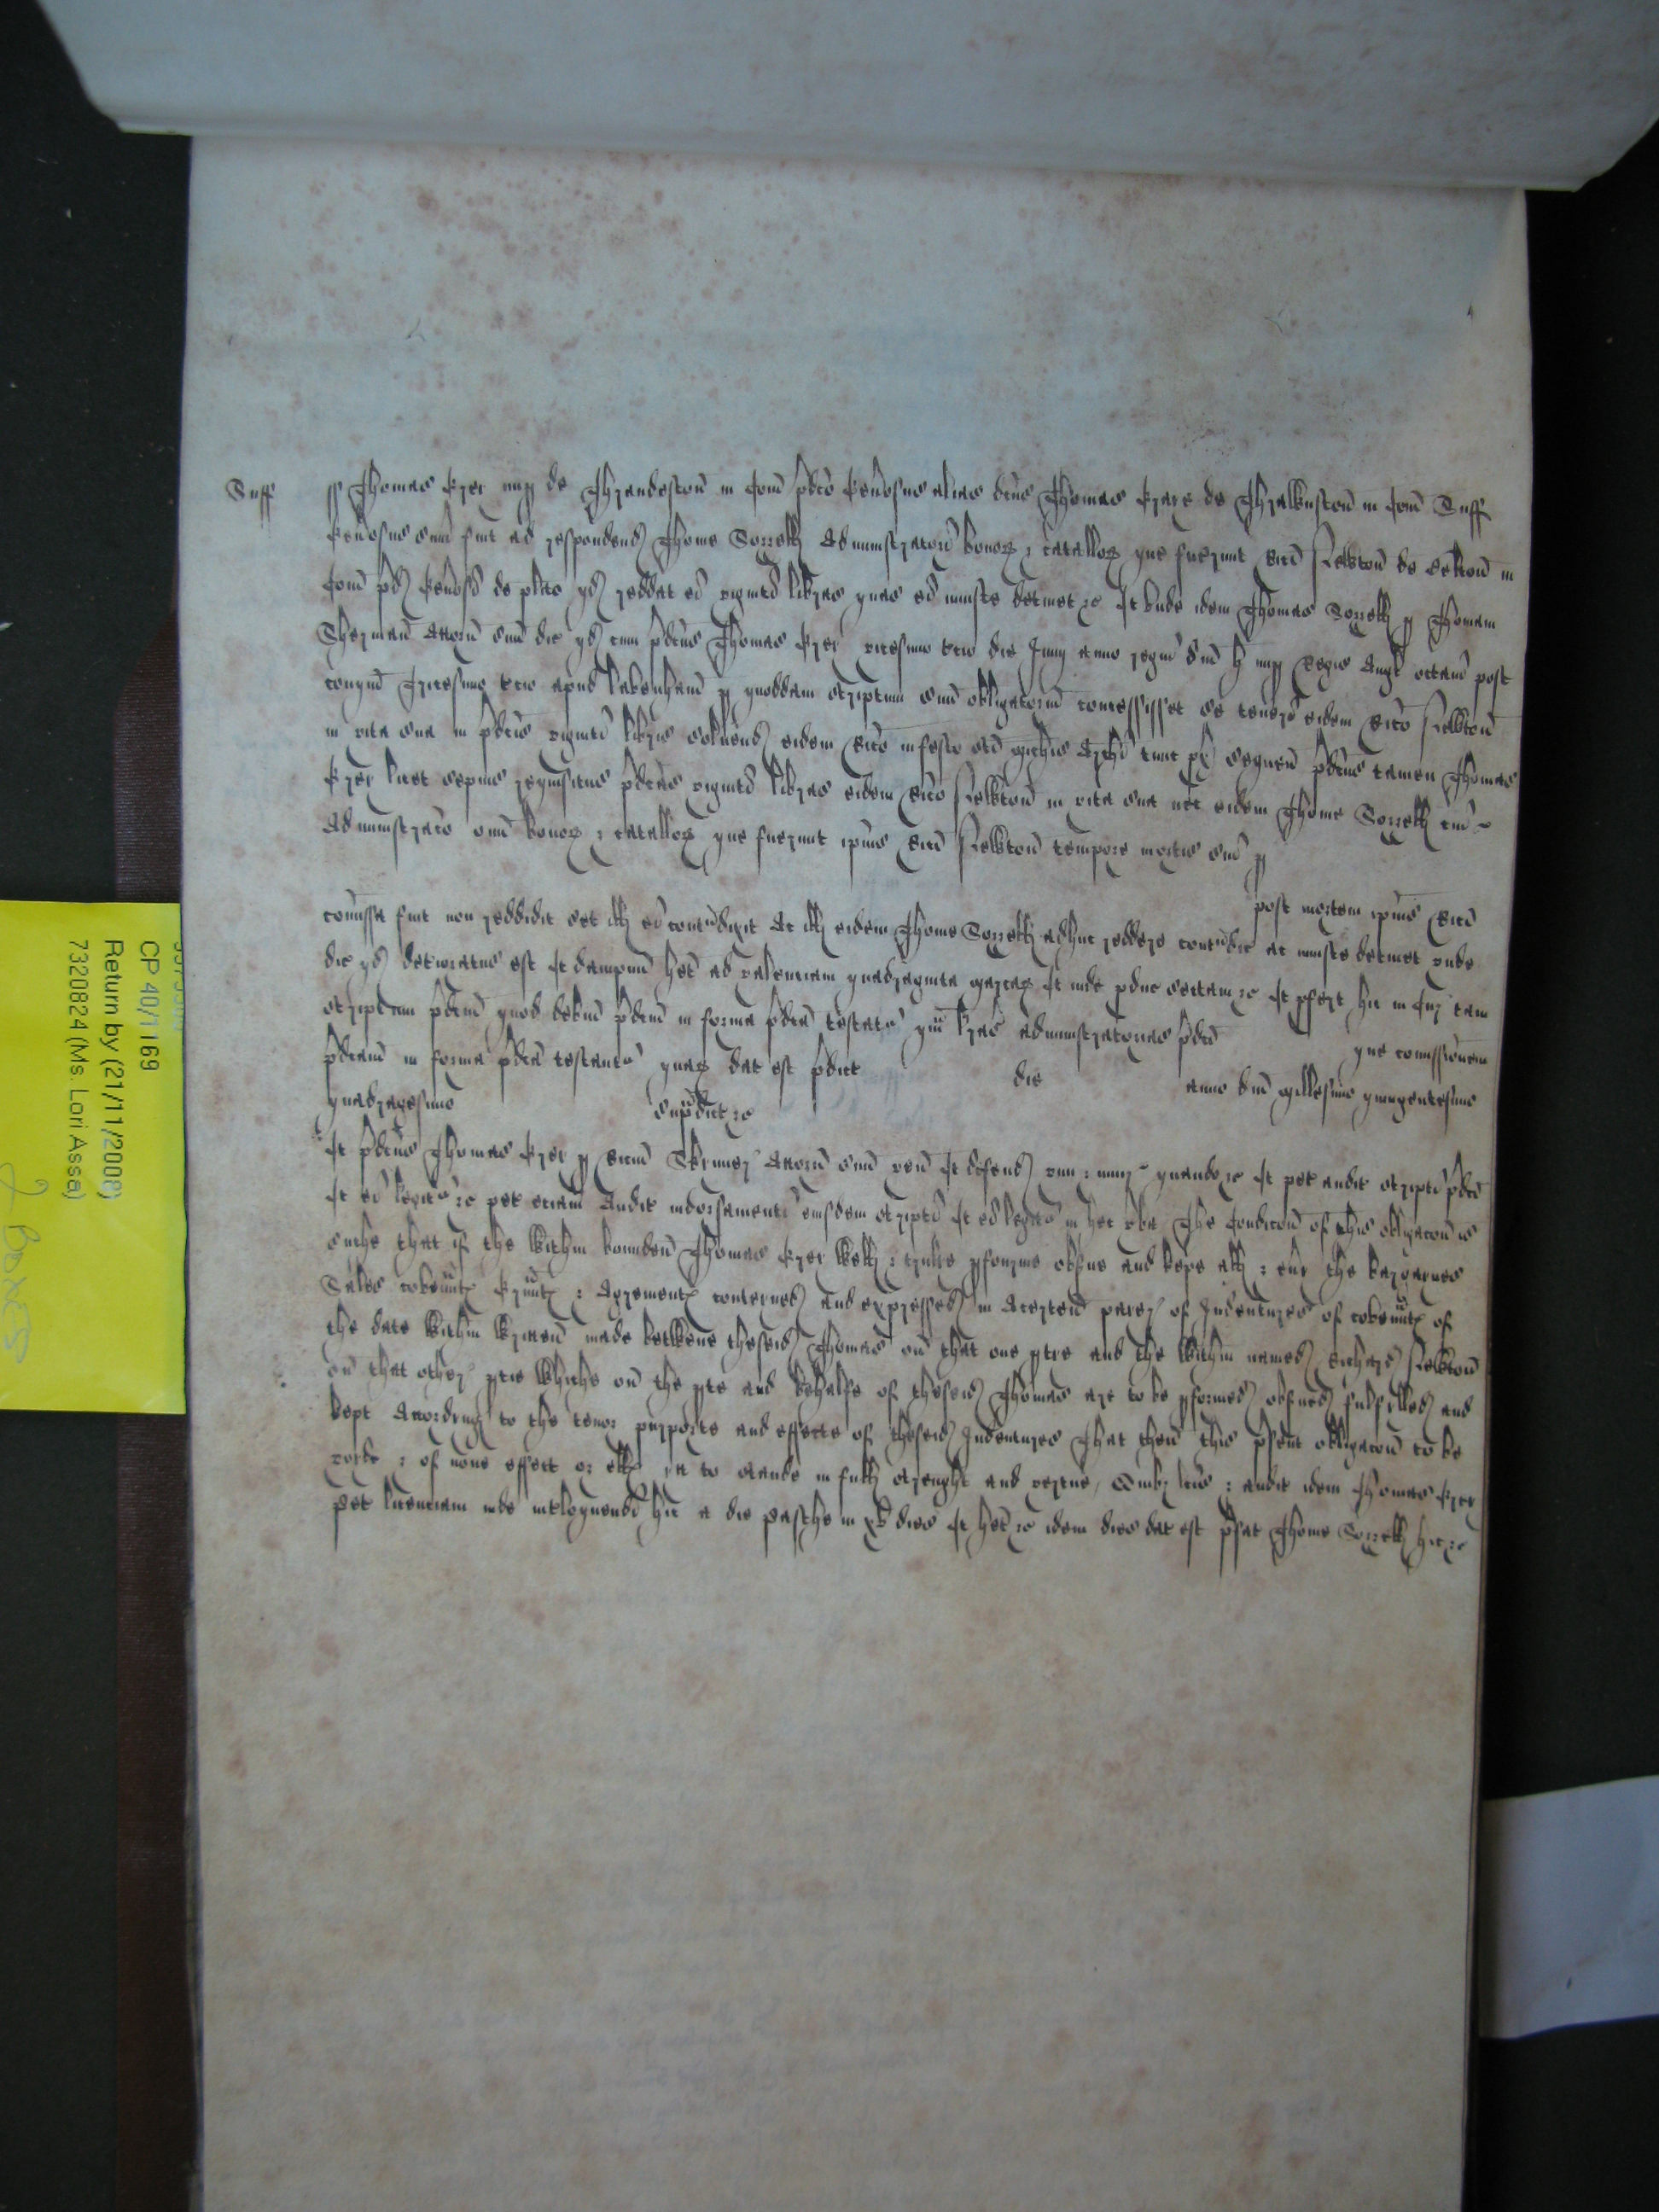 Suff
ss Thomas Fyer nup de Thrandeston in Com pdco alias dcus Thomas Fryer de in Com Suff
sum fuit ad respondend Thome Sorrell Administratori bonoz & catalloz que fuerunt Rici Nelleton de in
Com pd de plito qd reddat ei viginti libras quas ei iniuste detinet &c Et unde idem Thomas Sorrell p Thomam
Sherman Attorn suu dic qd cum pdcus Thomas Fyer vicesimo tcio die Junii anno regni dni H nup Regis Angl octavi post
conqm tricesimo tcio apud Lakenham p quoddam scriptum suu obligatoriu concessisset se teneri eidem Rico Nelleton
in vita sua in pdcis viginti libris solvend eidem Rico in festo sci Michis Archi tunc px sequen pdcus tamen Thomas
Fyer licet sepius requisitus pdcas viginti libras eidem Rico Nelleton in vita sua nec eidem Thome Sorrell cui
Administraco oim bonoz & catalloz que fuerunt ipius Rici Nelleton tempore mortis sue p
post mortem ipius Rici
comissa fuit non reddidit set ill ei contradixit Ac ill eidem Thome Sorrell adhuc reddere contradic et iniuste detinet unde
dic qd deterioratus est et dampnu het ad valenciam quadraginta marcaz Et inde pduc sectam &c Et pfert hic in Cur tam
scriptum pdcm quod debitu pdcm in forma pdca testatr qm lras administratorias pdci que comissionem
pdcam in forma pdca testantr quaz dat est pdict die anno dni millesimo quingentesimo
quadragesimo supdict &c
Et pdcus Thomas Fyer p Ricm Skynner Attorn suu ven Et defend vim & iniur quando &c Et pet audit scripti pdci
Et ei legitr &c pet eciam Audit indorsamenti eiusdem scripti Et ei legitr in hec vba The Condicon of this obligacon is
suche that if the within bounden Thomas Fyer well & trulie pforme obsve and kepe all & evy the bargaynes
Sales covenntz grauntz & Agrementz conteyned and expressed in A certen parez of Indentures of covenntz of
the date within wryten made betwene theseid Thomas on that one ptie and the within named Richard Nelleton
on that other ptie whiche on the pte and behalfe of theseid Thomas are to be pformed obsved fulfilled and
kept Acordyng to the tenor purporte and effecte of theseid Indentures That then this psent obligacon to be
voyde & of none effect or ells yt to stande in full strenght and vertue Quibz lcis & audit idem Thomas Fyer
pet licenciam inde intloquendi hic a die Pasche in xv dies Et het &c idem dies dat est pfat Thome Sorrell hic &c
CP 40/1169
Return by (21/11/2008)
73208244 (Ms. Lori Assa)
2 Boxes